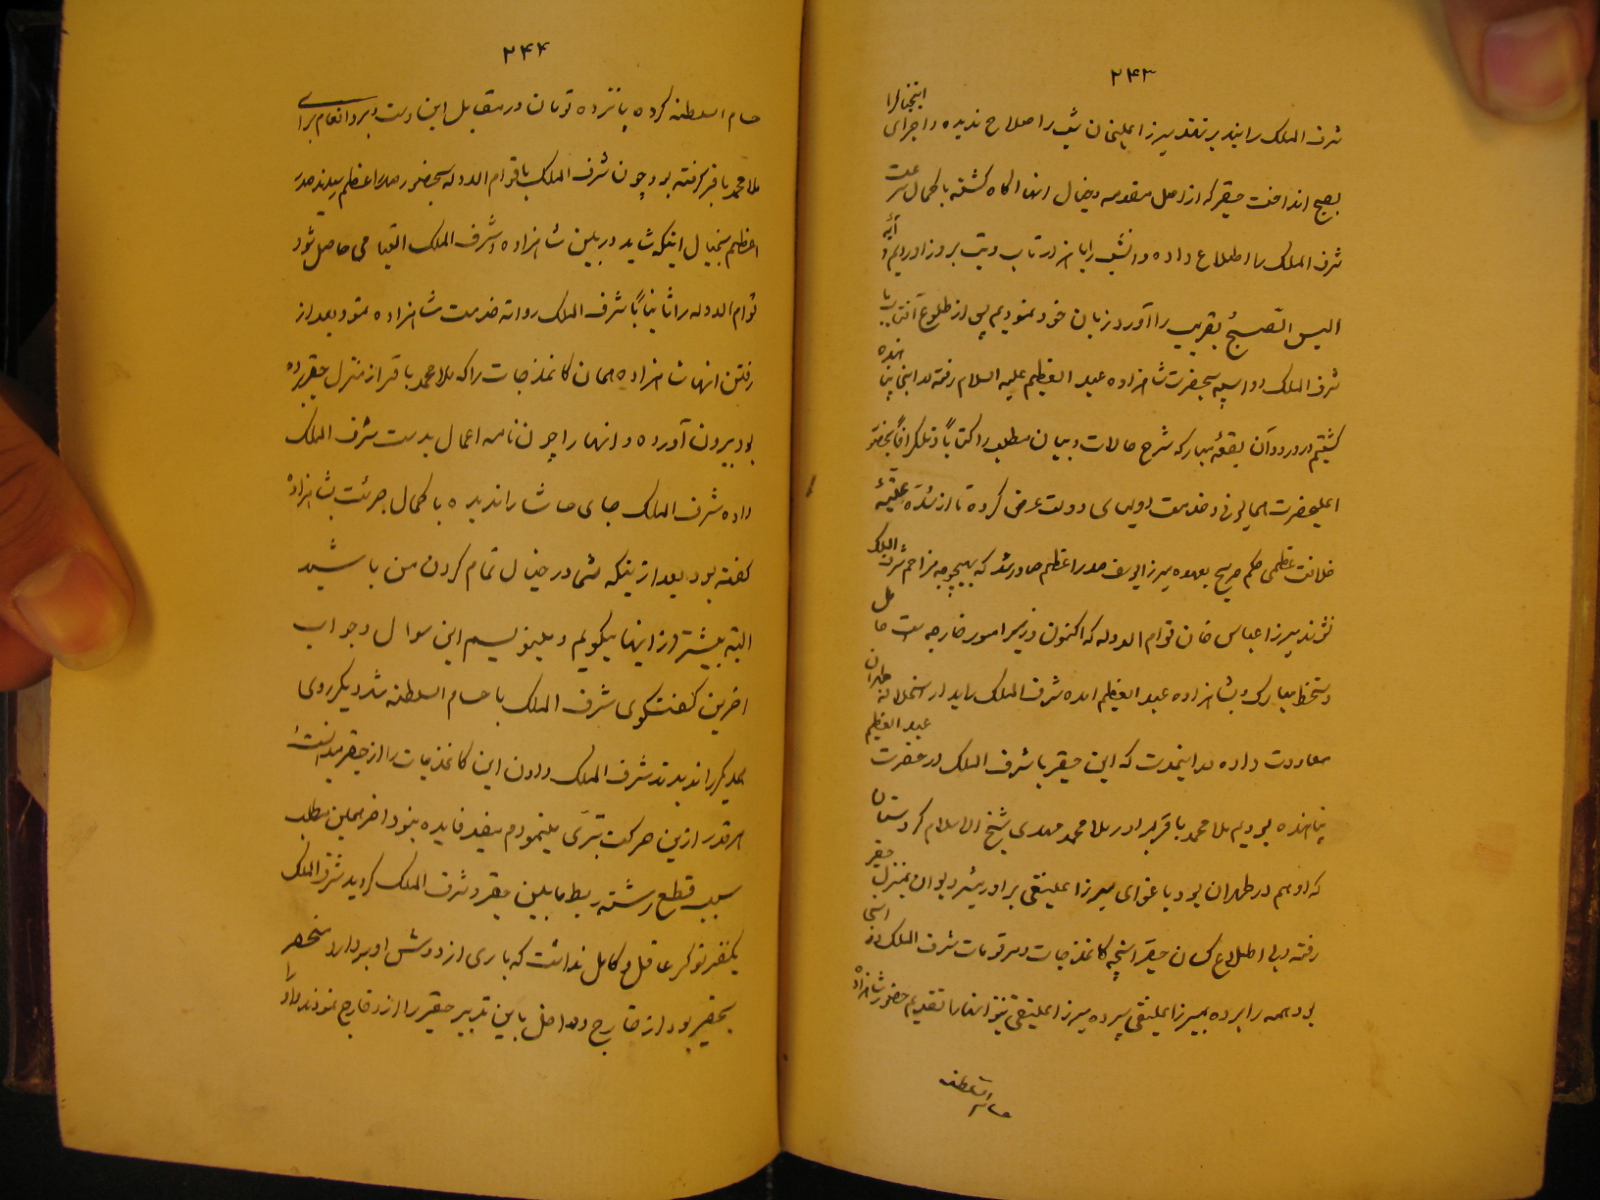 ۲۴۳
شرف الملک را بپذیرفتند میرزا علیخان شب را صلاح ندیده و اجرای اینخیال را
بصبح انداخت حقیر که از اصل مقدمه و خیال انها اکاه کشته با کمال سرعت
شرف الملک را اطلاع داده و انشب را با هزار تاب و تب بروز اوردیم و آیه
الیس الصبح بقریب را آورد زبان خود نمودیم پس از طلوع آفتاب با
شرف الملک دو اسپه بحضرت شاهزاده عبد العظیم علیه السلام رفته در انجا پناهنده
کشتیم در ورود آن بقعهٔ مبارکه شرح حالات و بیان مطلب را کتباً و تلکرافاً بحضور
اعلیحضرت همایونی و خدمت اولیای دولت عرض کرده تا از سدّهٔ علیّهٔ
خلافت عظمی حکم صریح بعهده میرزا یوسف صدر اعظم صادر شد که بهیچوجه مزاحم شرف الملک
نشوند میرزا عباس خان قوام الدوله که اکنون وزیر امور خارجه است حامل
دستخط مبارک و بشاهزاده عبد العظیم امده شرف الملک را بدار الخلافه طهران
معاودت داده در اینمدت که این حقیر با شرف الملک در حضرت عبد العظیم
پناهنده بودیم ملا محمد باقر برادر ملا محمد مهدی شیخ الاسلام کردستان
که او هم در طهران بود باغوای میرزا علینقی برادر مشیر دیوان بمنزل حقیر
رفته و بی اطلاع کسان حقیر انچه کاغذجات و مرقومات شرف الملک در انجا
بود همه را برده بمیرزا علینقی سپرده میرزا علینقی نیز انها را تقدیم حضور شاهزاده
حسام السلطنه
۲۴۴
حسام السلطنه کرده پانزده تومان در مقابل این دست برد انعام برای
ملا محمد باقر گرفته بود چون شرف الملک با قوام الدوله بحضور صدر اعظم رسیدند صدر
اعظم بخیال اینکه شاید در بین شاهزاده و شرف الملک التیامی حاصل شود
قوام الدوله را ثانیاً با شرف الملک روانه خدمت شاهزاده نمود بعد از
رفتن انها شاهزاده همان کاغذجات را که ملا محمد باقر از منزل حقیر برده
بود بیرون آورده و انها را چون نامه اعمال بدست شرف الملک
داده شرف الملک جای حاشا را ندیده با کمال جرئت بشاهزاده
کفته بود بعد از اینکه شما در خیال تمام کردن من باشید
البته بیشتر از اینها میکویم و مینویسم این سوال و جواب
اخرین کفتکوی شرف الملک با حسام السلطنه شد دیکر روی
همدیکر را ندیدند شرف الملک دادن این کاغذجات را از حقیر میدانست
هر قدر ازین حرکت تبرّی مینمودم مفید فایده نبود اخر همین مطلب
سبب قطع رشته ربط مابین حقیر و شرف الملک کردید شرف الملک
یکنفر نوکر عاقل و کامل نداشت که باری از دوش او بردارد منحصر
بحقیر بود از خارج و داخل باین تدبیر حقیر را از او خارج نمودند و او را